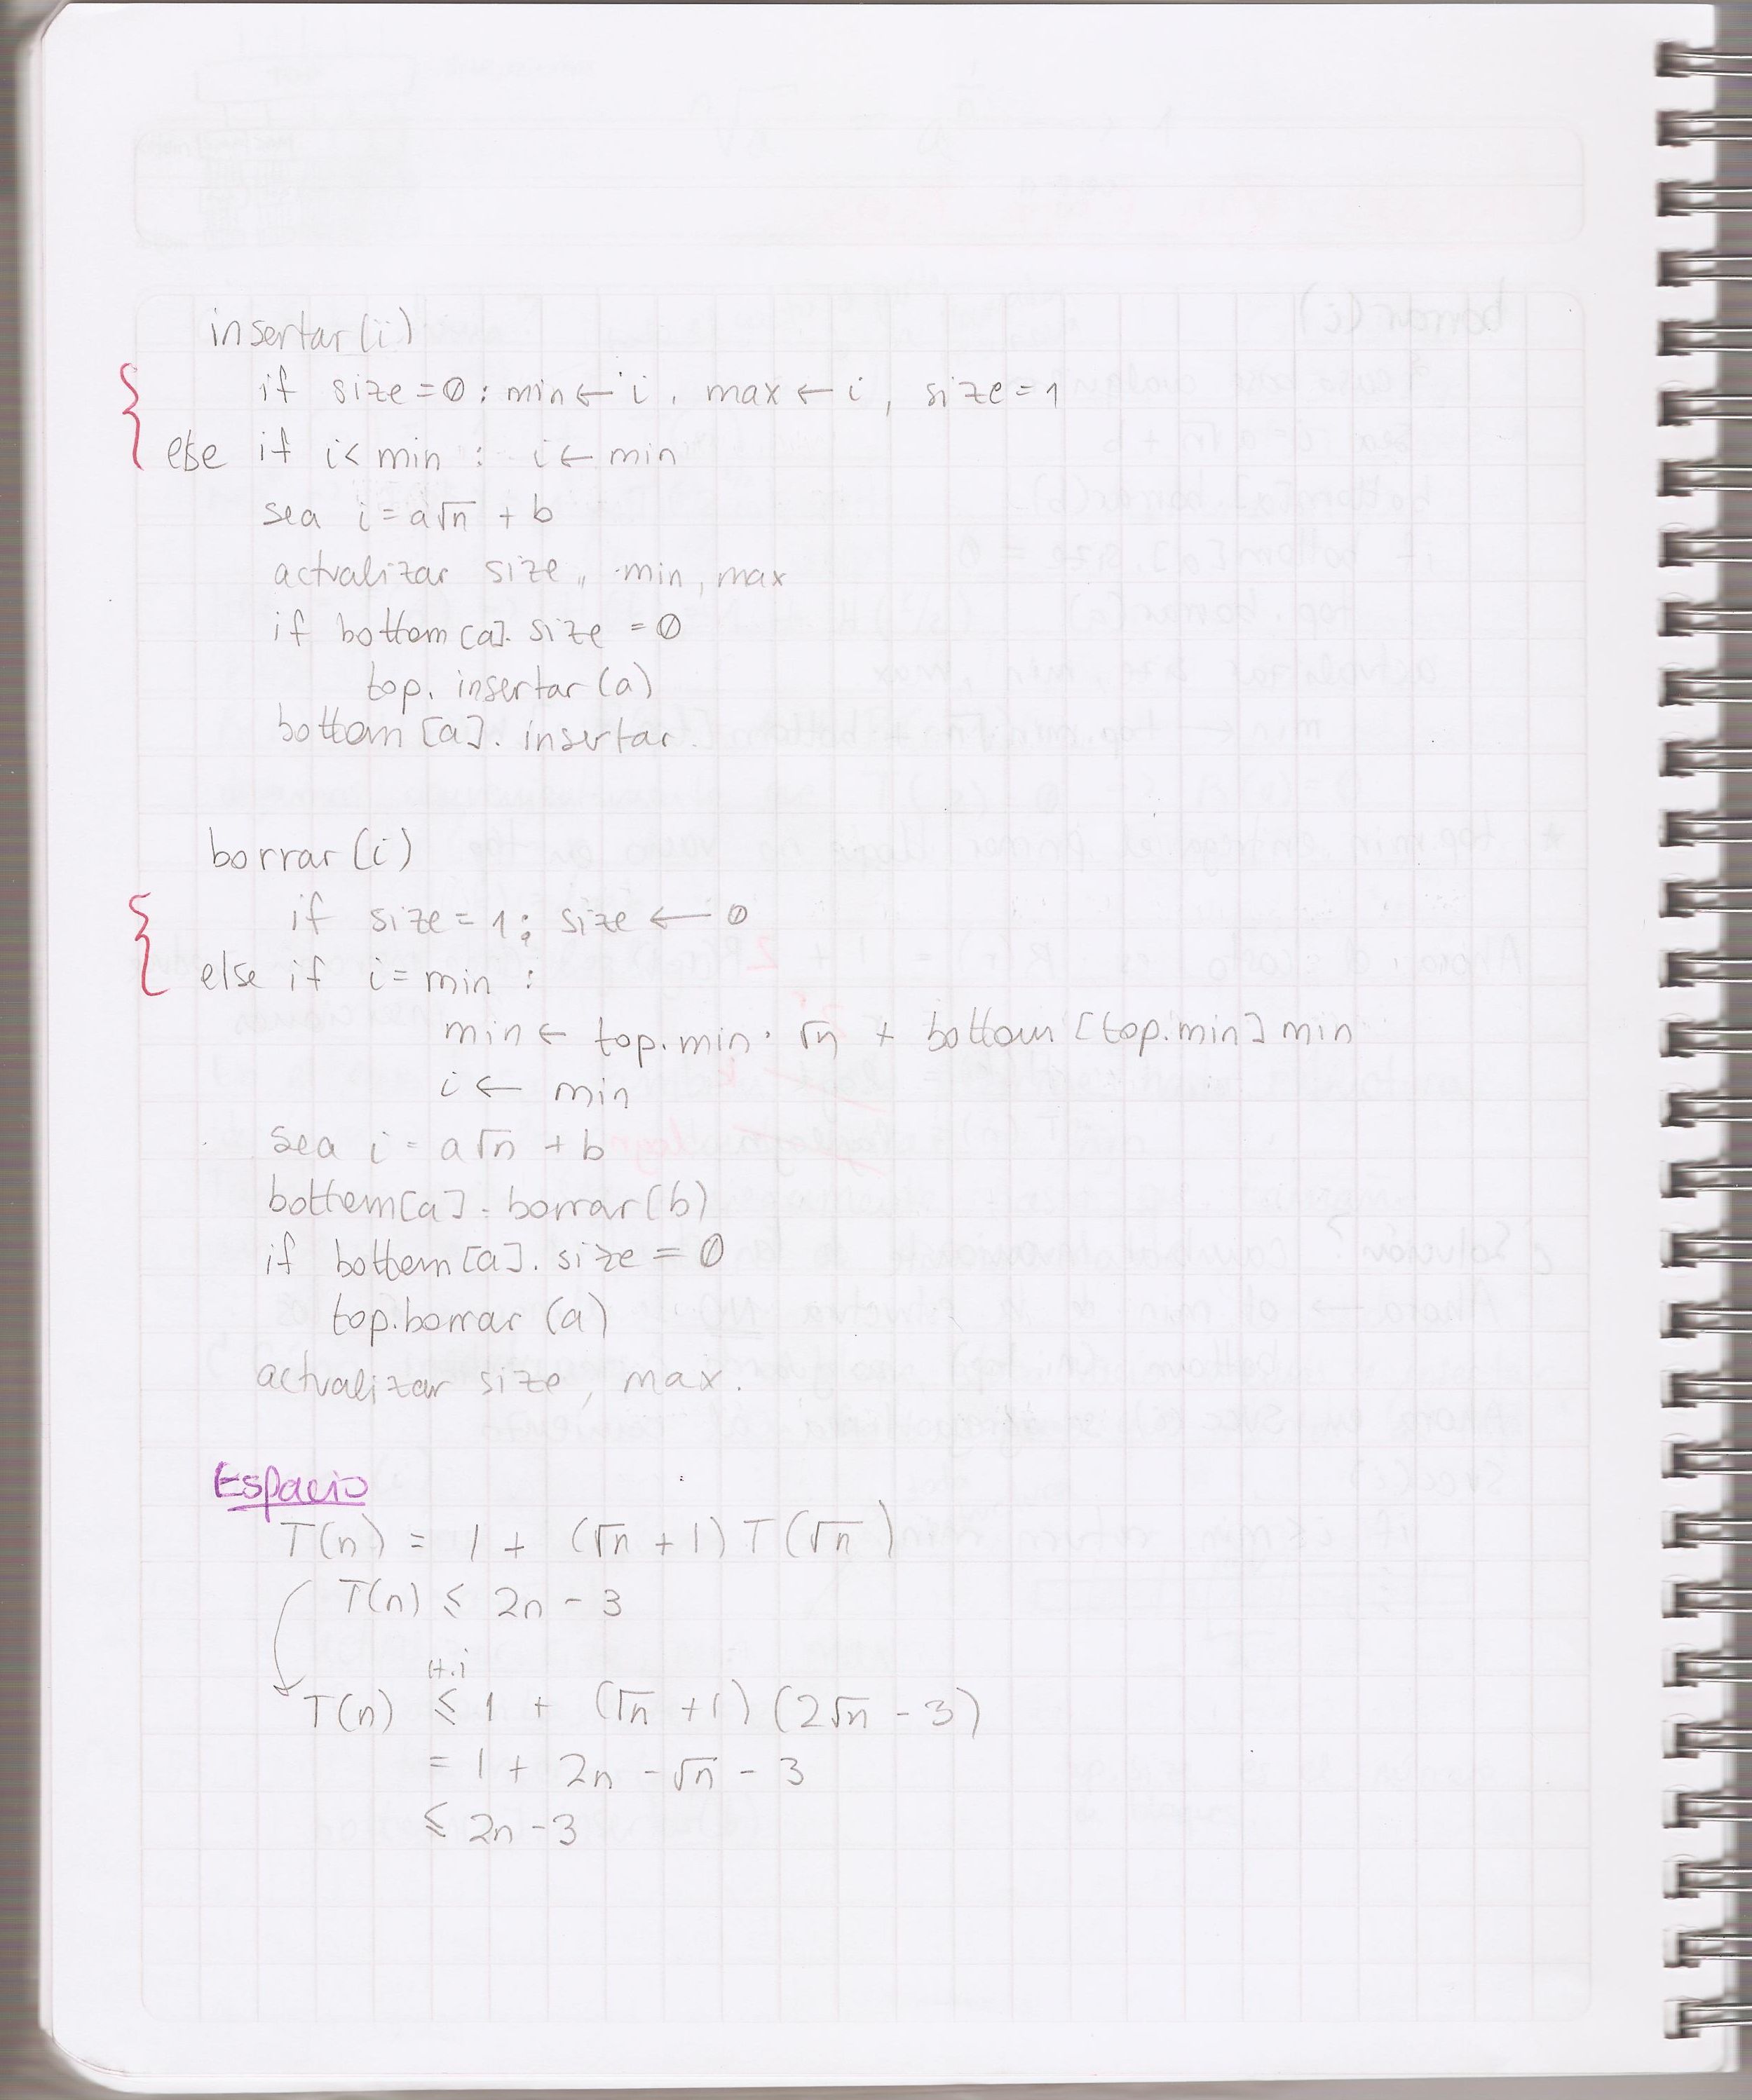 insertar(i)
if size=0: min←i, max←i, size=1
else if i<min: i←min
sea i=a√n + b
actualizar size, min, max
if bottom[a].size=0
top.insertar(a)
bottom[a].insertar.
borrar(i)
if size=1: size←0
else if i=min:
min← top.min·√n + bottom[top.min]min
i← min
sea i=a√n +b
bottem[a].borrar(b)
if bottem[a].size=0
top.borrar(a)
actualizar size, max.
Espacio
T(n) = 1 + (√n +1)T(√n)
T(n) ≤ 2n - 3
H.i
T(n) ≤ 1 + (√n +1)(2√n - 3)
= 1 + 2n -√n - 3
≤ 2n -3